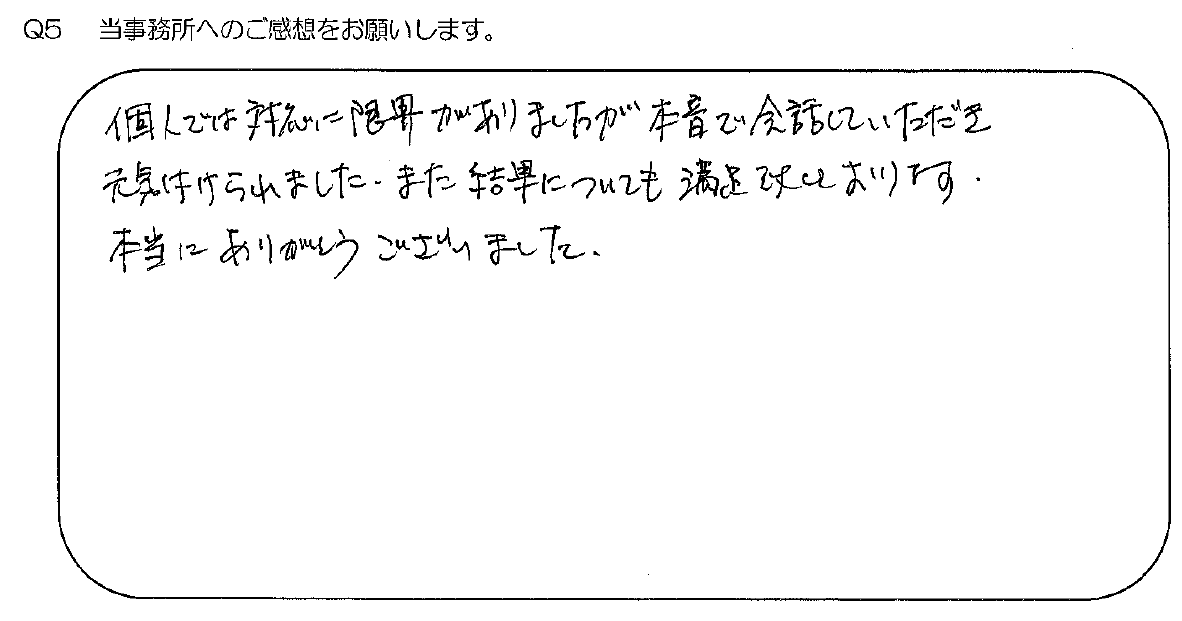 Q5 当事務所へのご感想をお願いします。
個人では対応に限界がありましたが本音で会話していただき
元気付けられました。また結果についても満足致しております。
本当にありがとうございました。